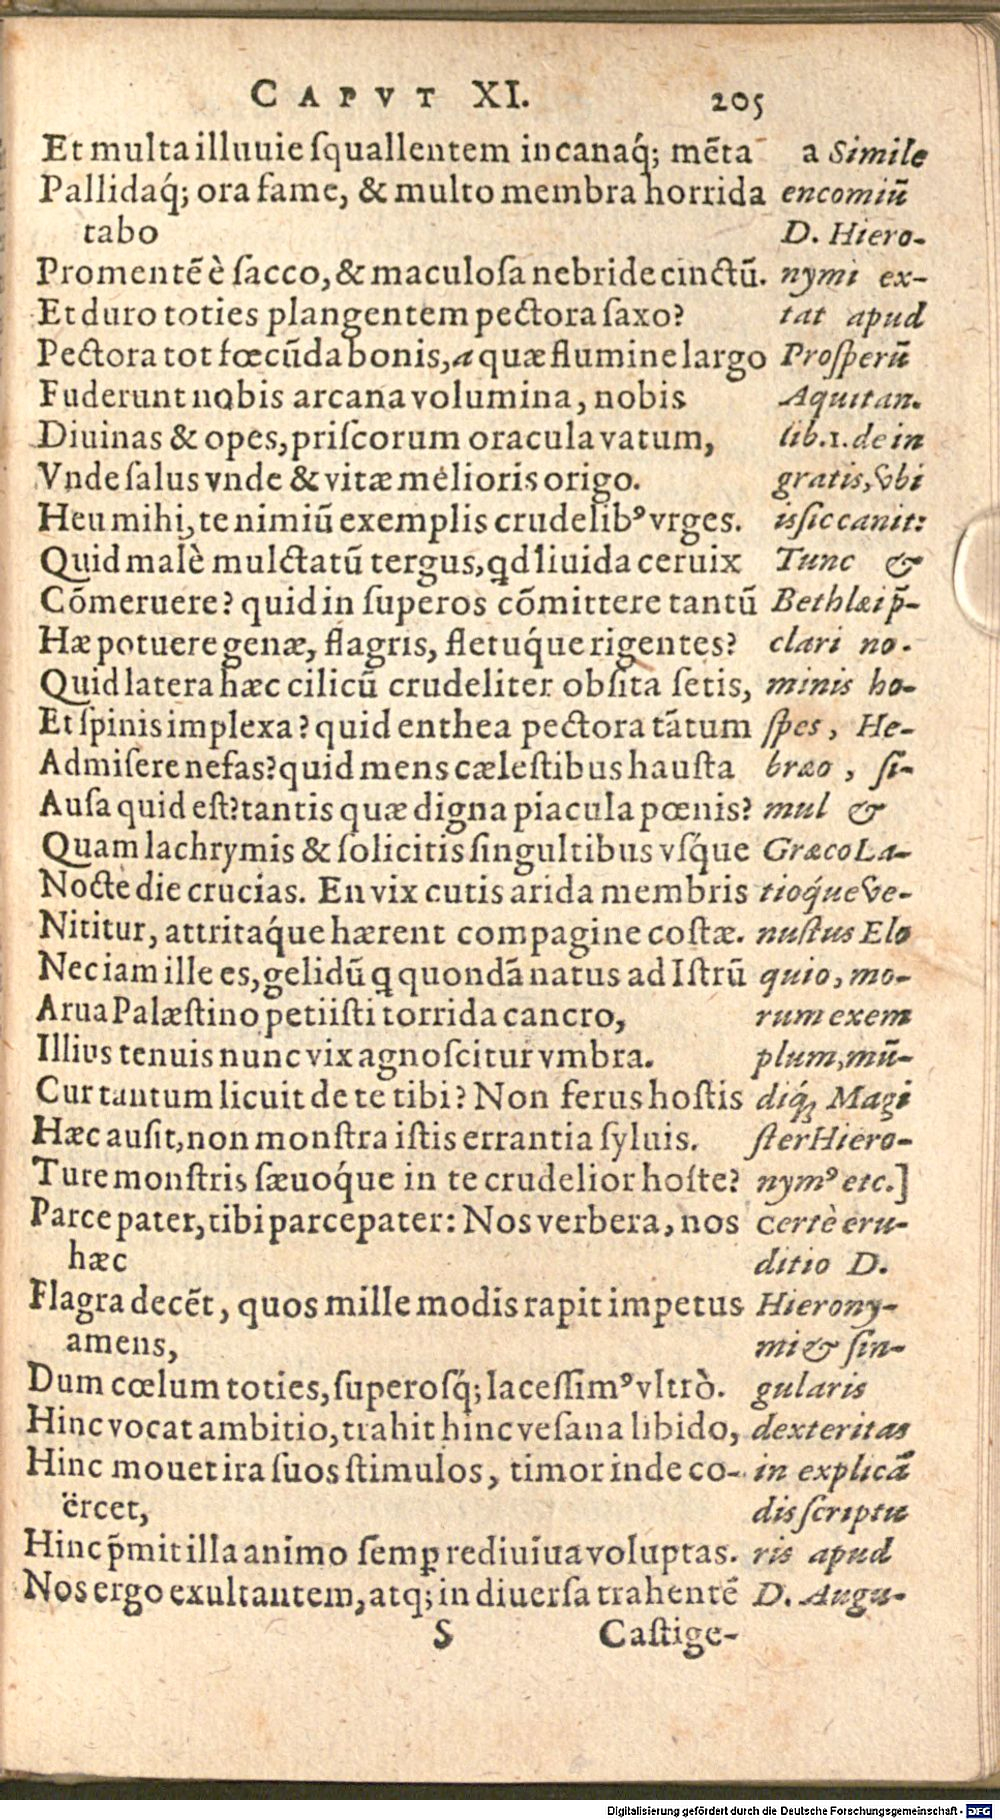 CAPVT XI. 205
Et multa illuuie squallentem incanaq́; mẽta
Pallidaq́; ora fame, & multo membra horrida
tabo
Promentẽ è sacco, & maculosa nebride cinctũ.
Et duro toties plangentem pectora saxo?
Pectora tot fœcũda bonis, a quæ flumine largo
Fuderunt nobis arcana volumina, nobis
Diuinas & opes, priscorum oracula vatum,
Vnde salus vnde & vitæ melioris origo.
Heu mihi, te nimiũ exemplis crudelibꝰ vrges.
Quid malè mulctatũ tergus, qd liuida ceruix
Cõmeruere? quid in superos cõmittere tantũ
Hæ potuere genæ, flagris, fletuq́ue rigentes?
Quid latera hæc cilicũ crudeliter obsita setis,
Et spinis implexa? quid enthea pectora tãtum
Admisere nefas? quid mens cælestibus hausta
Ausa quid est? tantis quæ digna piacula pœnis?
Quam lachrymis & solicitis singultibus vsq́ue
Nocte die crucias. En vix cutis arida membris
Nititur, attritaq́ue hærent compagine costæ.
Nec iam ille es, gelidũ q quondã natus ad Istrũ
Arua Palæstino petiisti torrida cancro,
Illius tenuis nunc vix agnoscitur vmbra.
Cur tantum licuit de te tibi? Non ferus hostis
Hæc ausit, non monstra istis errantia syluis.
Tu re monstris sæuoq́ue in te crudelior hoste?
Parce pater, tibi parce pater: Nos verbera, nos
hæc
Flagra decẽt, quos mille modis rapit impetus
amens,
Dum cœlum toties, superosq́; lacessimꝰ vltrò.
Hinc vocat ambitio, trahit hinc vesana libido,
Hinc mouet ira suos stimulos, timor inde co-
ërcet,
Hinc p̃mit illa animo semꝑ rediuiua voluptas.
Nos ergo exultantem, atq; in diuersa trahentẽ
S Castige-
a Simile
encomiũ
D. Hiero-
nymi ex-
tat apud
Prosperũ
Aquitan.
lib. 1. de in
gratis, vbi
is sic canit:
Tunc &
Bethlæi p̃-
clari no-
minis ho-
spes, He-
bræo, si-
mul &
Græco La-
tioq́ue ve-
nustus Elo
quio, mo-
rum exem
plum, mũ-
diq́; Magi
ster Hiero-
nymꝰ etc.]
Certè eru-
ditio D.
Hierony-
mi & sin-
gularis
dexteritas
in explicã
dis scriptu
ris apud
D. Augu-
Digitalisierung gefördert durch die Deutsche Forschungsgemeinschaft - DFG